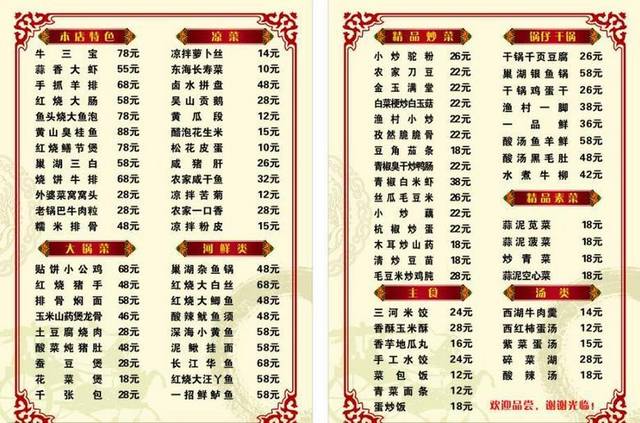 本店特色
牛三宝 78元
蒜香大虾 55元
手抓羊排 68元
红烧大肠 58元
鱼头烧大鱼泡 78元
黄山臭桂鱼 88元
红烧鳝节煲 98元
巢湖三白 58元
饼烧牛排 68元
外婆菜窝窝头 28元
老锅巴牛肉粒 28元
糯米排骨 48元
凉菜
凉拌萝卜丝 14元
东海长寿菜 10元
卤水拼盘 48元
吴山贡鹅 28元
黄瓜段 12元
醋泡花生米 15元
松花皮蛋 10元
咸猪肝 26元
农家咸干鱼 32元
凉拌苦菊 12元
农家一口香 28元
凉拌粉皮 15元
大锅菜
贴饼小公鸡 68元
红烧猪手 48元
排骨焖面 58元
玉米山药煲龙骨 46元
土豆腐烧肉 28元
酸菜炖猪肚 48元
蚕豆煲 28元
花菜煲 18元
千张包 28元
河鲜类
巢湖杂鱼锅 48元
红烧大白丝 68元
红烧大鲫鱼 48元
酸辣鱿鱼须 48元
深海小黄鱼 58元
泥鳅挂面 58元
长江华鱼 58元
红烧大汪丫鱼 58元
一招鲜鲈鱼 58元
精品炒菜
小炒驼粉 26元
农家刀豆 22元
金玉满堂 22元
白菜梗炒白玉菇 22元
渔村小炒 22元
孜然脆脆骨 22元
豆角茄条 18元
青椒臭干炒鸭肠 22元
青椒白米虾 38元
丝瓜毛豆米 26元
小炒藕 22元
杭椒炒蛋 22元
木耳炒山药 18元
清炒豆苗 28元
毛豆米炒鸡肫 28元
主食
三河米饺 24元
香酥玉米酥 28元
香芋地瓜丸 16元
手工水饺 24元
菜包饭 12元
青菜面条 12元
蛋炒饭 18元
锅仔干锅
干锅千页豆腐 26元
巢湖银鱼锅 58元
干锅鸡蛋干 26元
渔村一脚 38元
一品鲜 36元
酸汤鱼羊鲜 58元
酸汤黑毛肚 48元
水煮牛柳 42元
精品素菜
蒜泥苋菜 18元
蒜泥菠菜 18元
炒青菜 18元
蒜泥空心菜 18元
汤类
西湖牛肉羹 14元
西红柿蛋汤 12元
紫菜蛋汤 15元
碎菜湖 28元
酸辣汤 18元
欢迎品尝，谢谢光临！